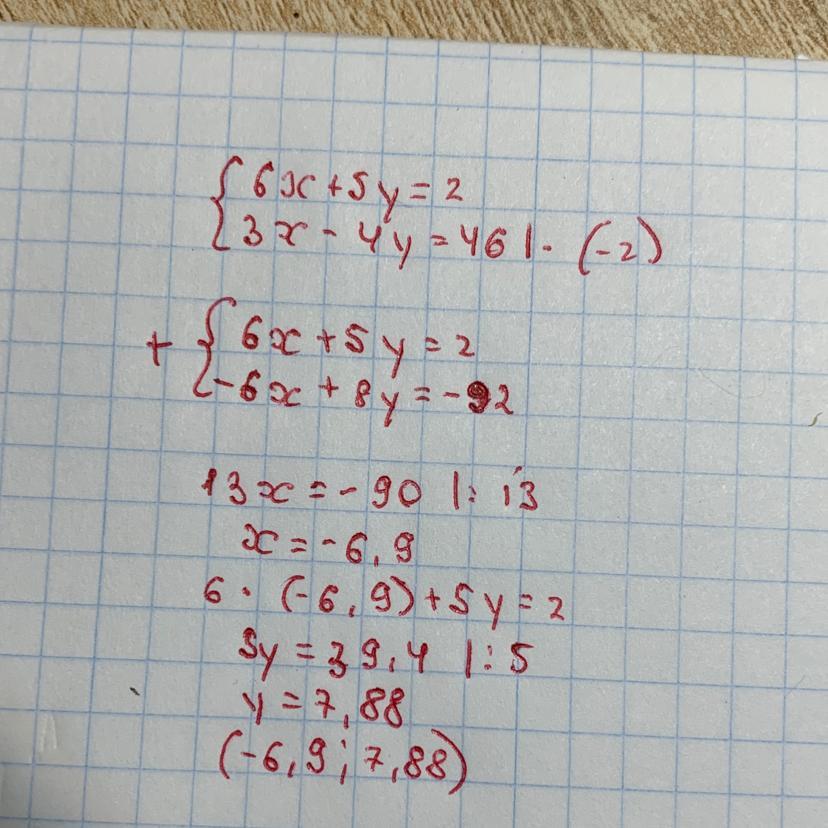 { 6x + 5y = 2
3x - 4y = 46 | · (-2)
+ { 6x + 5y = 2
-6x + 8y = -92
13x = -90 |: 13
x = -6,9
6 · (-6,9) + 5y = 2
5y = 39,4 |: 5
y = 7,88
(-6,9; 7,88)